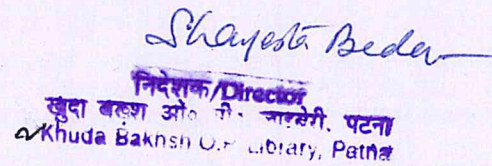 Shayesta Bedar
निदेशक/Director
खुदा बख्श ओ० पी० लाइब्रेरी, पटना
Khuda Bakhsh O.P. Library, Patna